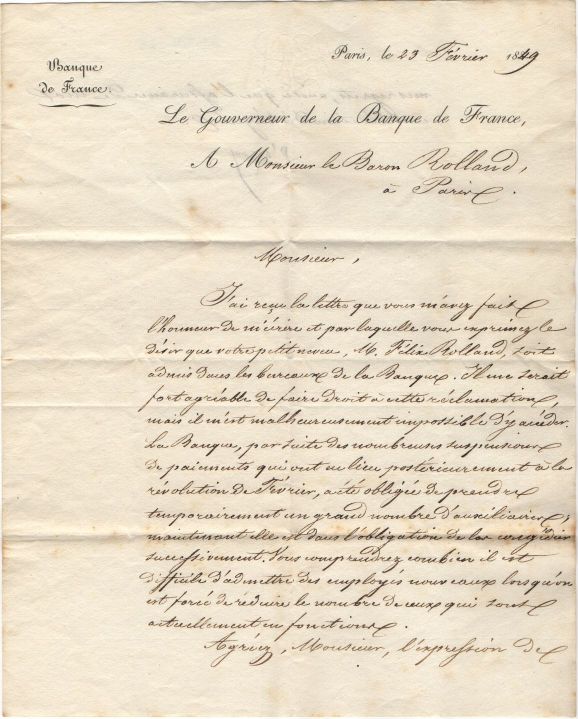 Paris, le 23 Février 1849
Banque
de France.
Le Gouverneur de la Banque de France,
A Monsieur le Baron Rolland,
à Paris.
Monsieur,
J'ai reçu la lettre que vous m'avez fait
l'honneur de m'écrire et par laquelle vous exprimez le
désir que votre petit neveu, M. Félix Rolland, soit
admis dans les bureaux de la Banque. Il me serait
fort agréable de faire droit à cette réclamation,
mais il m'est malheureusement impossible d'y accéder.
La Banque, par suite des nombreuses suspensions
de paiements qui ont eu lieu postérieurement à la
révolution de Février, a été obligée de prendre
temporairement un grand nombre d'auxiliaires;
maintenant elle est dans l'obligation de les congédier
successivement. Vous comprendrez combien il est
difficile d'admettre des employés nouveaux lorsqu'on
est forcé de réduire le nombre de ceux qui sont
actuellement en fonctions.
Agréez, Monsieur, l'expression de